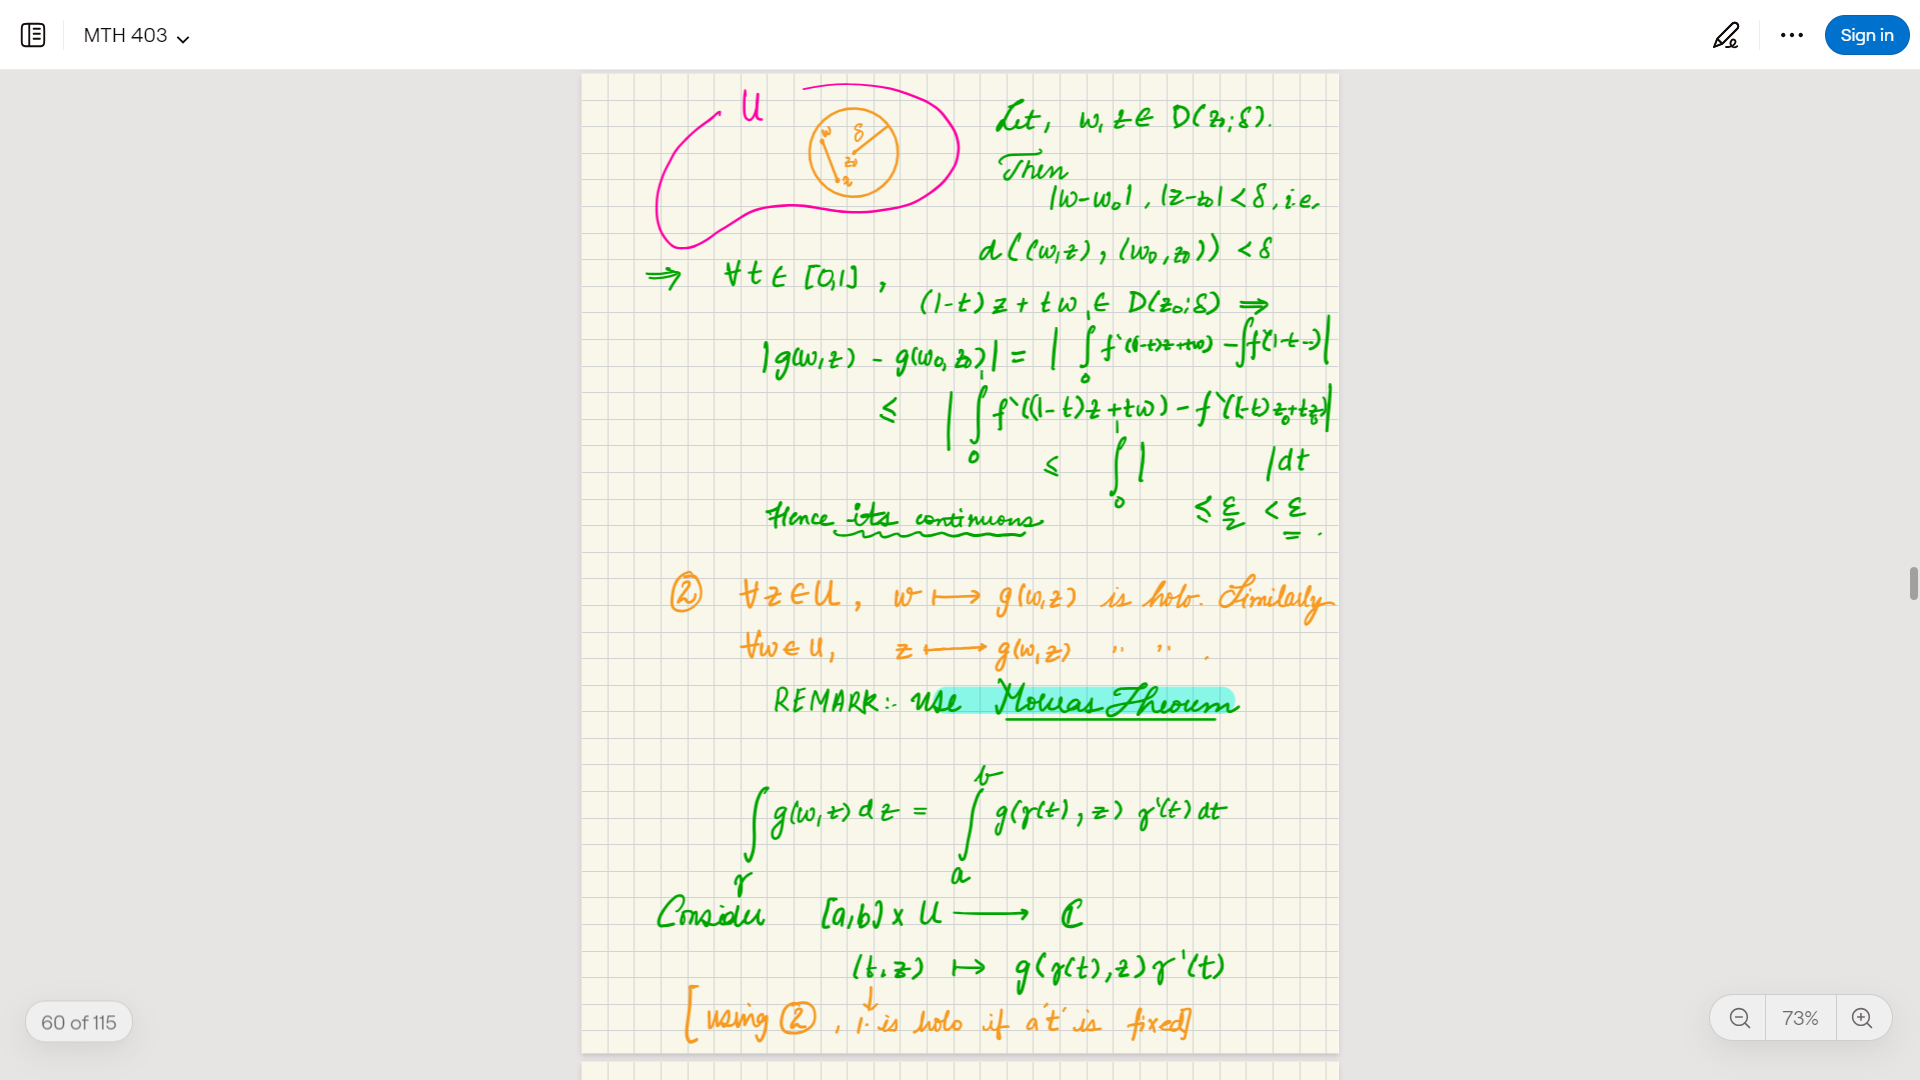 MTH 403
Sign in
U
w δ
z₀
z
Let, w, z ∈ D(z₀; δ).
Then
|w-w₀|, |z-z₀| < δ, i.e.
d((w,z), (w₀,z₀)) < δ
⇒ ∀ t ∈ [0,1],
(1-t)z + tw ∈ D(z₀;δ) ⇒
|g(w,z) - g(w₀,z₀)| = | ∫₀¹ f'((1-t)z+tw) - ∫f'(1-t--)|
≤ | ∫₀¹ f'((1-t)z+tw) - f'((1-t)z₀+tz₀)|
≤ ∫₀¹ | |dt
≤ ε/2 < ε.
Hence its continuous
② ∀ z ∈ U, w ⟼ g(w,z) is holo. Similarly
∀w ∈ U, z ⟼ g(w,z) " " .
REMARK:- use Moreras Theorem
∫_γ g(w,z) dz = ∫_a^b g(γ(t), z) γ'(t) dt
Consider [a,b] x U ⟶ ℂ
(t,z) ↦ g(γ(t),z)γ'(t)
↓
[using ②, is holo if a 't' is fixed]
60 of 115
73%